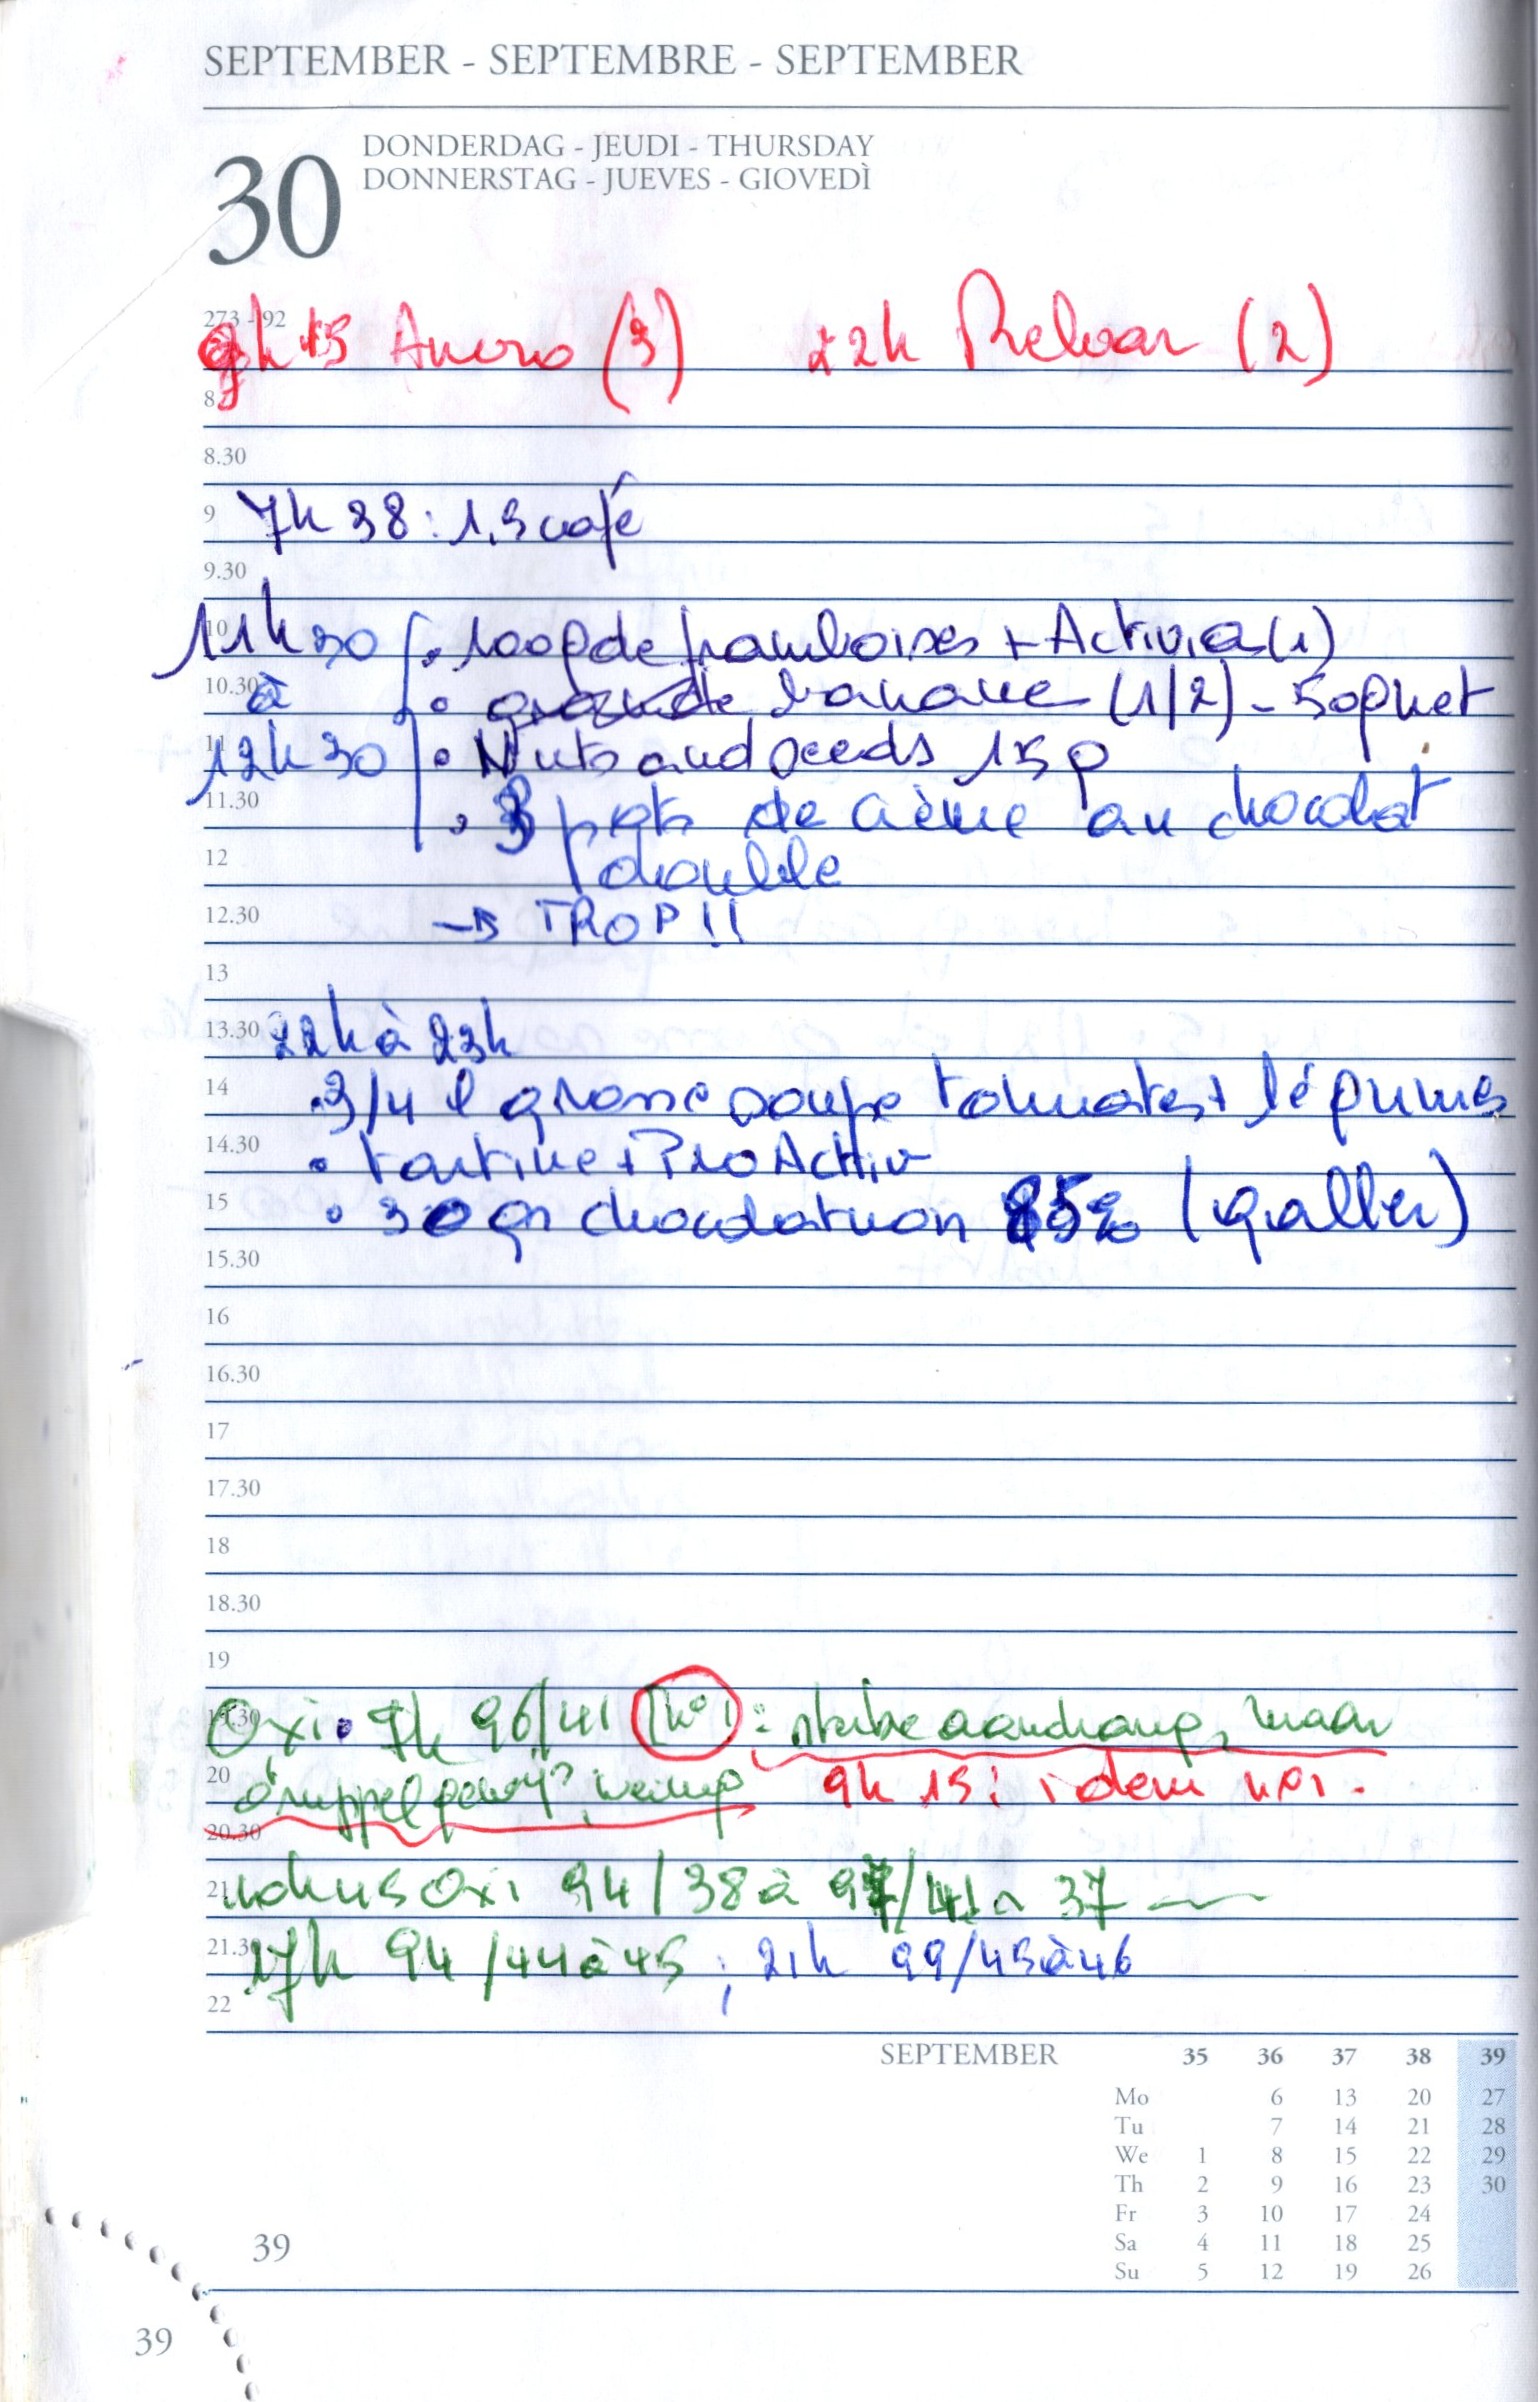 SEPTEMBER - SEPTEMBRE - SEPTEMBER
30
DONDERDAG - JEUDI - THURSDAY
DONNERSTAG - JUEVES - GIOVEDÌ
273 - 92
9h15 Anoro (3) 22h Relvar (2)
8
8.30
9 7h38 : 1,5 café
9.30
10 11h30 . 100g de framboises + Activia (1)
10.30 à . banane (1/2) - 50g net
11 12h30 . Nuts and seeds 15g
11.30 . 3 pots de crème au chocolat
12 double
12.30 → TROP !!
13
13.30 22h à 23h
14 . 3/4 l grosse soupe tomates + légumes
14.30 . tartine + ProActiv
15 . 30 gr chocolat noir 85% (galler)
15.30
16
16.30
17
17.30
18
18.30
19
19.30 Oxi. 9h 96/41 maar
20 druppel 9h 15 : idem n°1.
20.30
21 Oxi 94/38 à 97/41 37
21.30 17h 94/44 à 45 ; 21h 99/45 à 46
22
SEPTEMBER 35 36 37 38 39
Mo 6 13 20 27
Tu 7 14 21 28
We 1 8 15 22 29
Th 2 9 16 23 30
Fr 3 10 17 24
Sa 4 11 18 25
Su 5 12 19 26
39
39